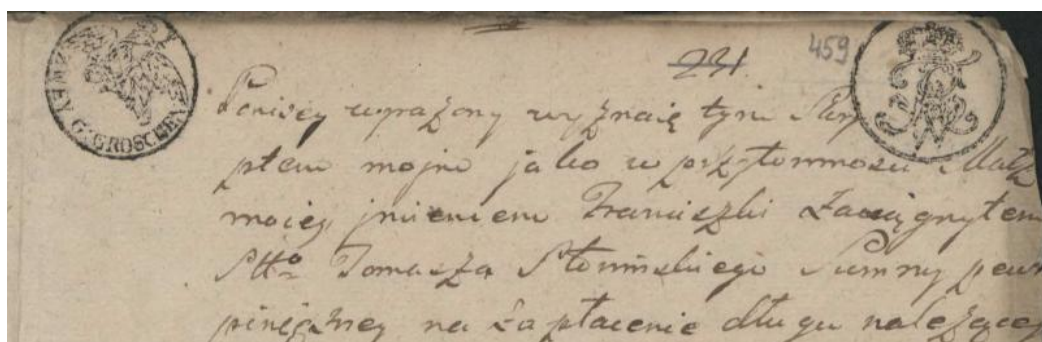 231.
459
G. GROSCHEN
Poniżey wyrażony wyznaię tym Skry
ptem moim jako w przytomnosci Małż
moiey, jmieniem Franciszki zaciągnąłem
Stto Tomasza Słonińskiego Summy pew
pinięzney na zapłacenie długu należącey